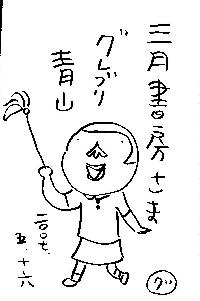 三月書房さま
グレゴリ
青山
二〇〇七.
五.十六
グ